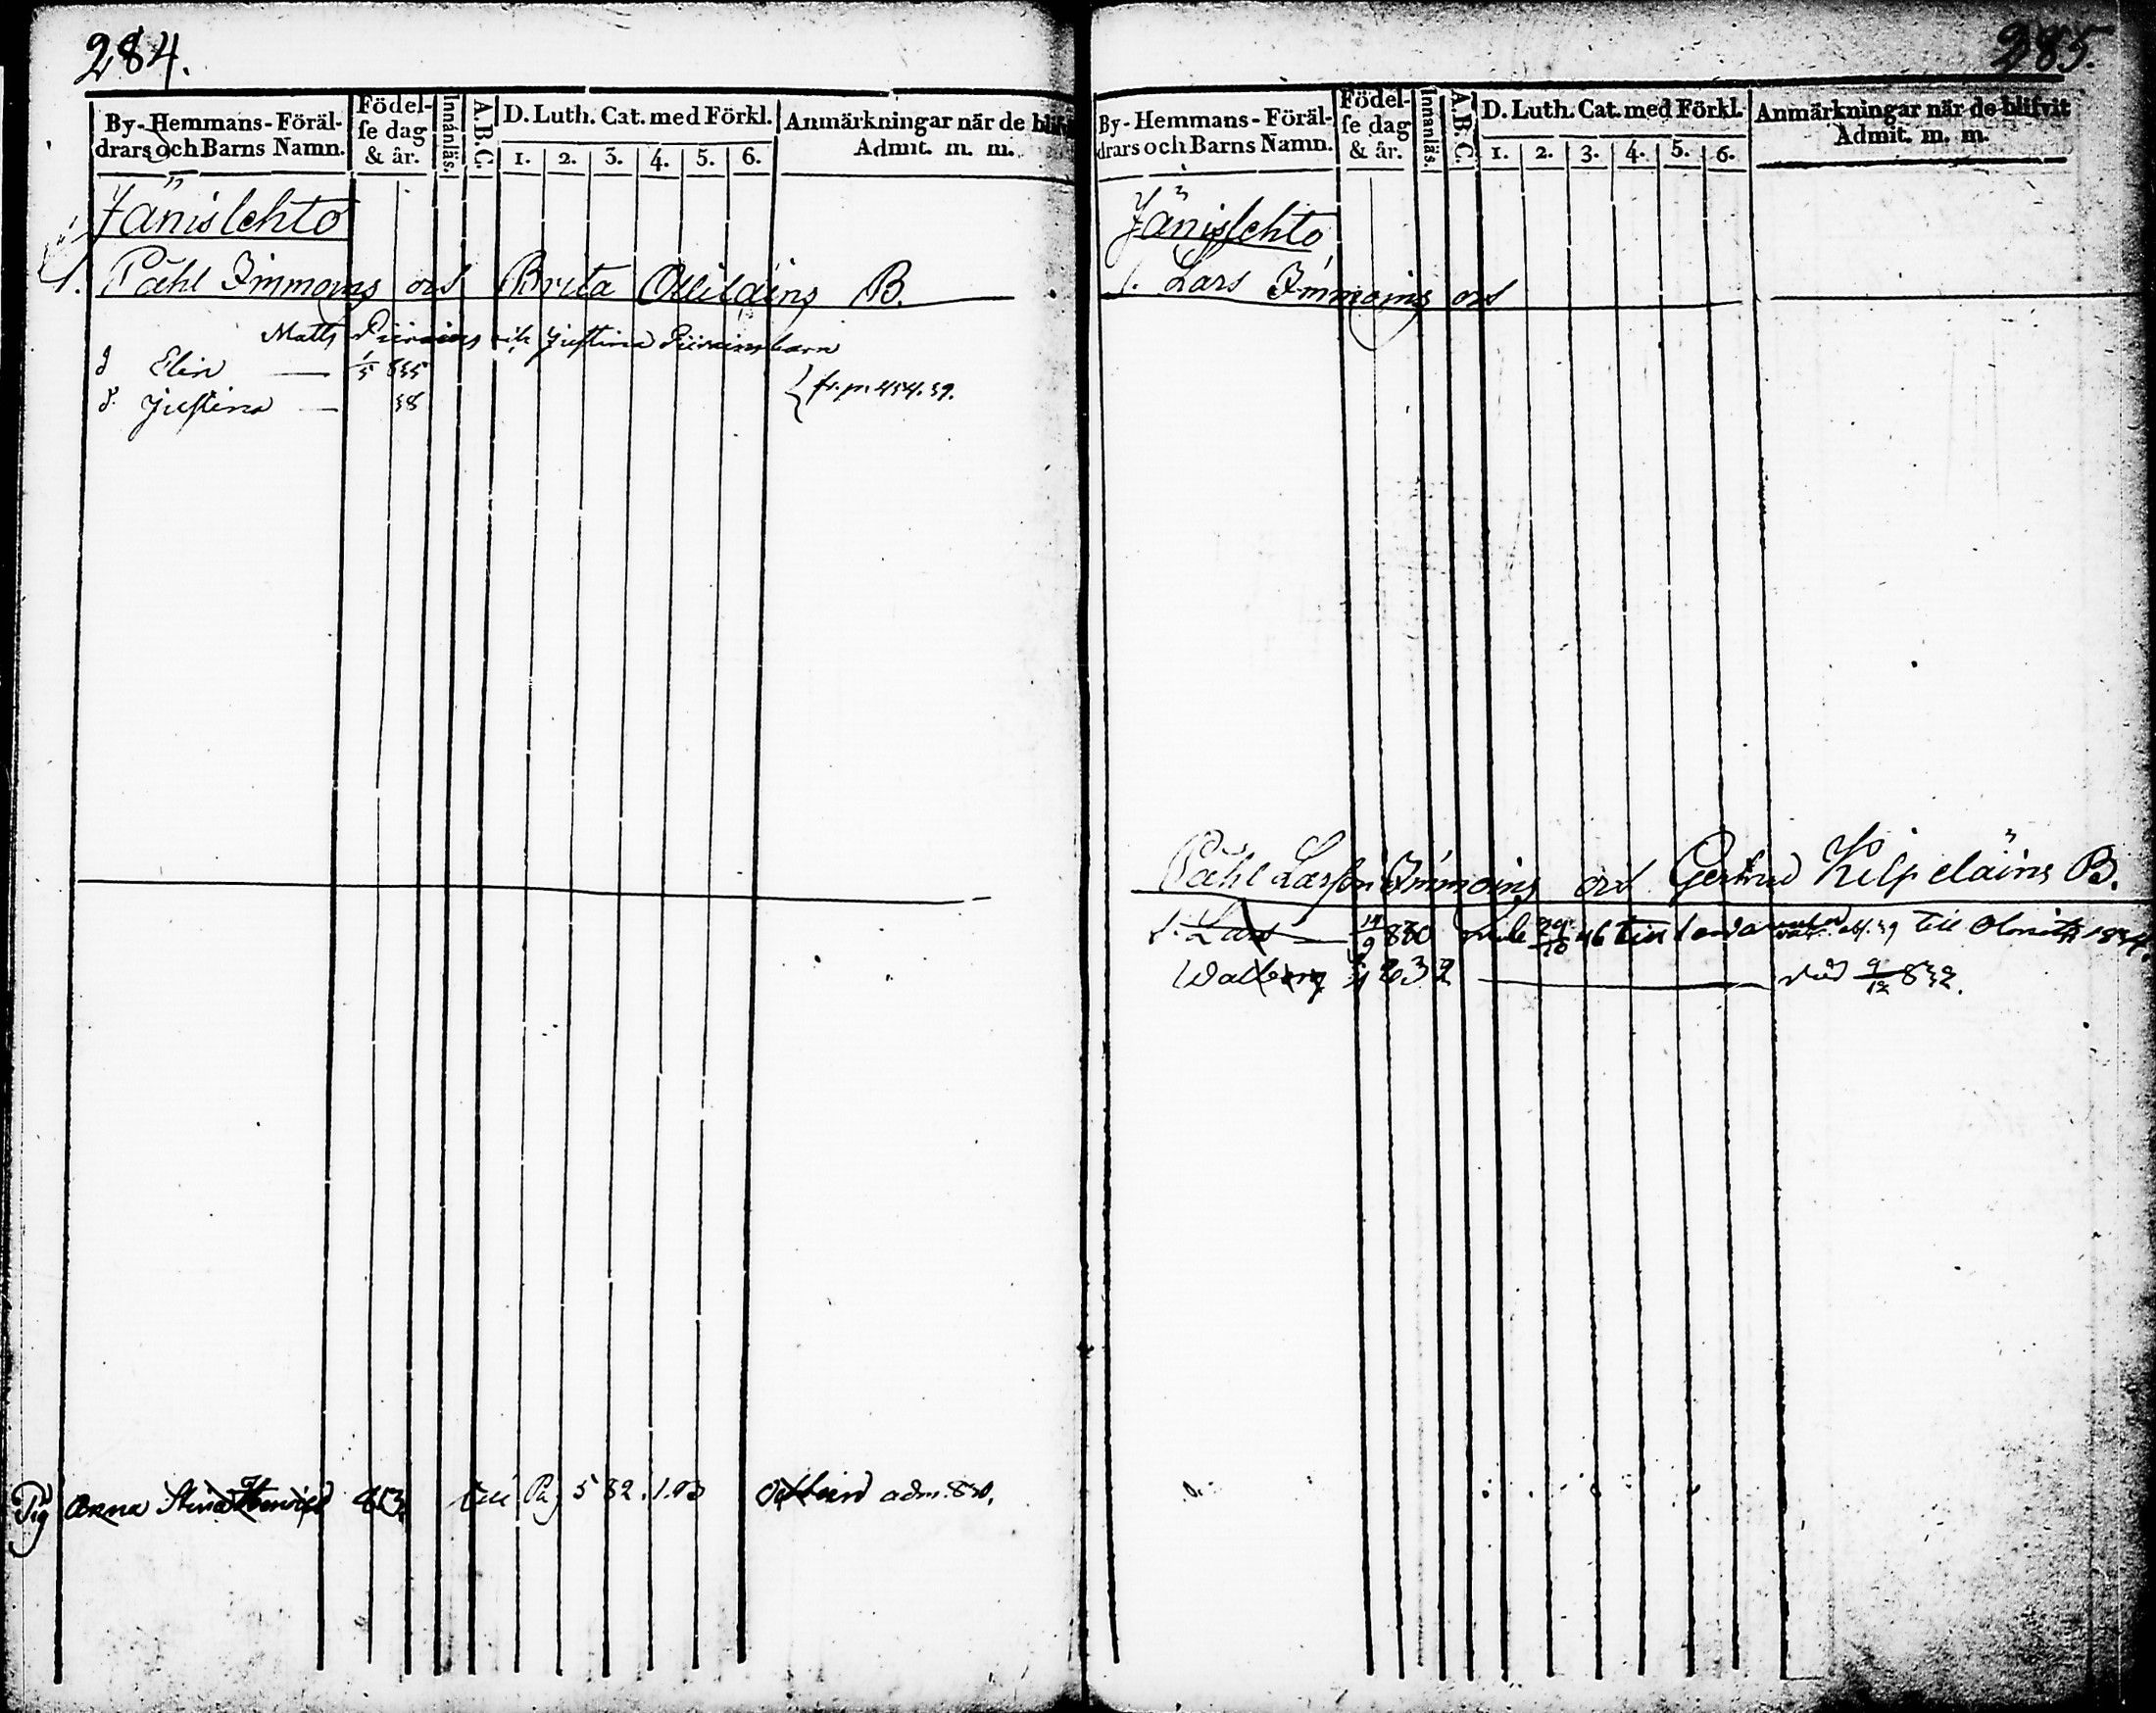 284.
By-Hemmans-Föräl-
drars och Barns Namn.
Födel-
se dag
& år.
Innanläs.
A.B.C.
D. Luth. Cat. med Förkl.
1. 2. 3. 4. 5. 6.
Anmärkningar när de blifvit
Admit. m. m.
Jänislehto
1. Påhl Immoins och Brita Ollilains B.
Matts Piirains och Justina Piirains barn
d Elin 1/5 835
d. Justina 38
fr. p. 454. 39.
Pig Anna Stina 813. till Pag 532. adm. 830.
285.
By-Hemmans-Föräl-
drars och Barns Namn.
Födel-
se dag
& år.
Innanläs.
A.B.C.
D. Luth. Cat. med Förkl.
1. 2. 3. 4. 5. 6.
Anmärkningar när de blifvit
Admit. m. m.
Jänislehto
1. Lars Immoins och
Påhl Larsson Immoins och Gertrud Kilpeläins B.
s. Lars 14/9 830 29/10 46 till
Walborg 832 död 9/12 832.